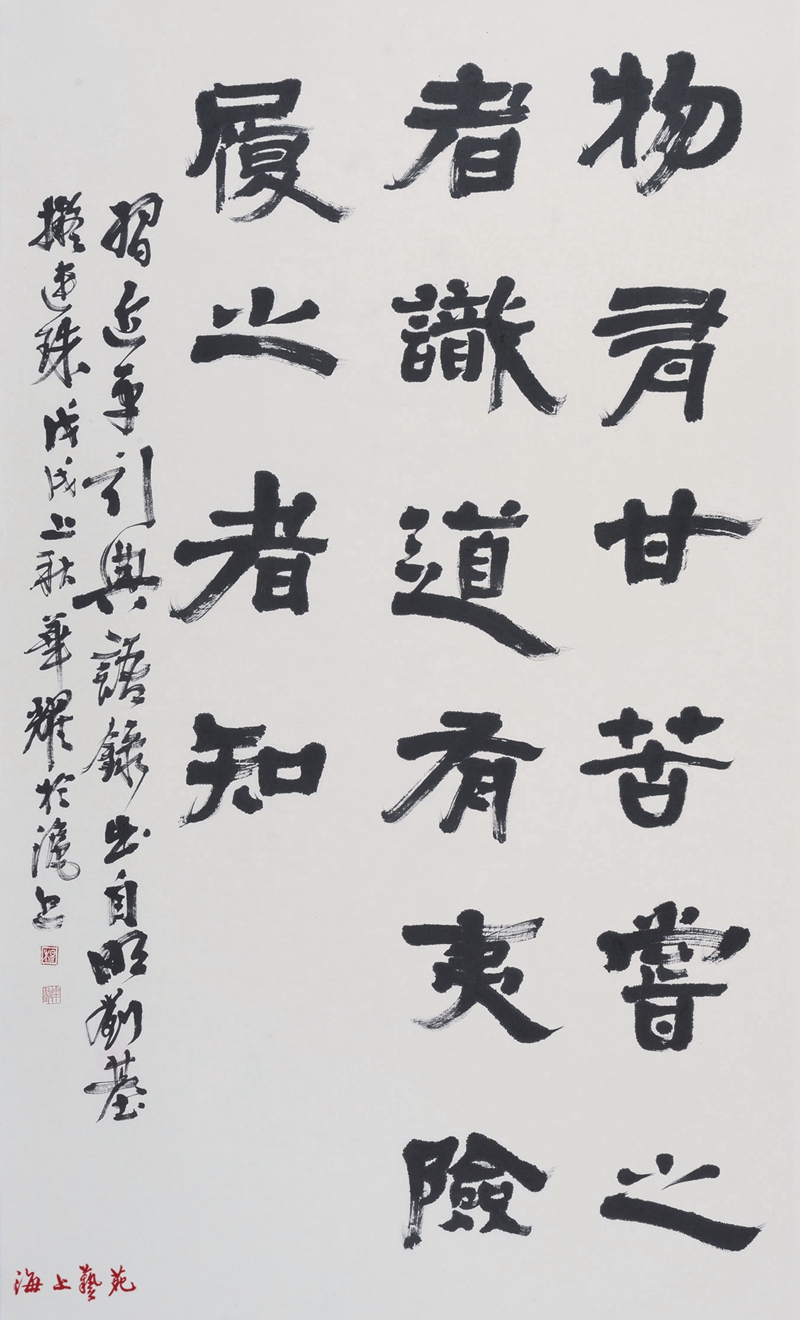 物有甘苦嘗之
者識道有夷險
履之者知
習近平引典語錄出自明劉基
擬連珠戊戌上秋華耀於滬上
海上藝苑